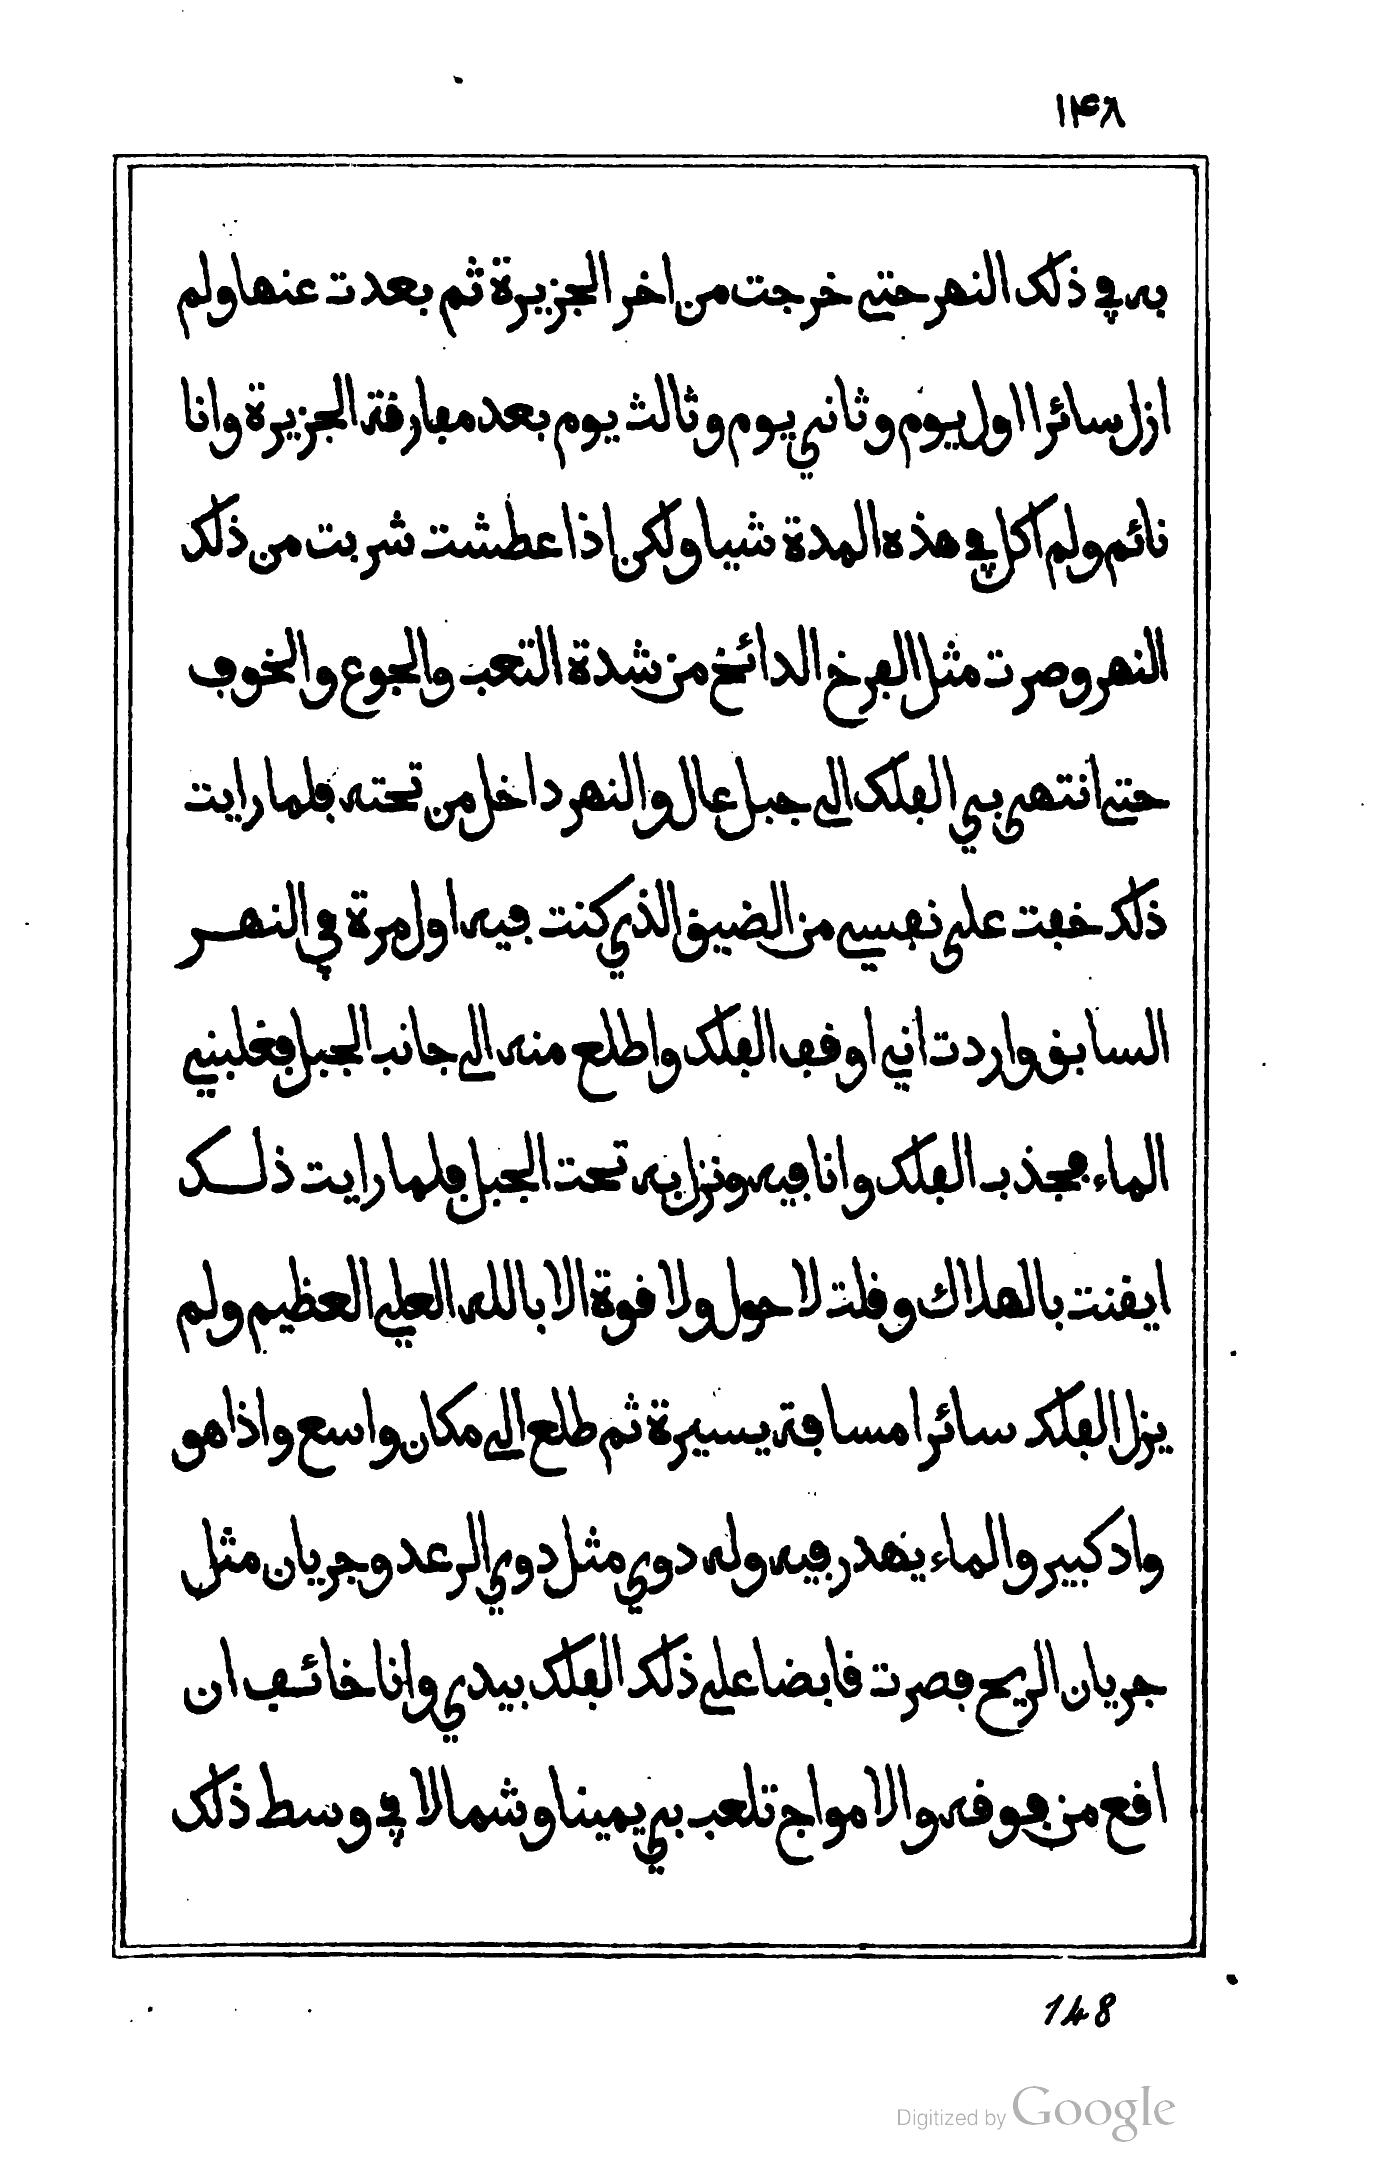 ١٤٨
به في ذلك النهر حتى خرجت من اخر الجزيرة ثم بعدت عنها ولم
ازل سائرا اول يوم وثاني يوم وثالث يوم بعد مفارقة الجزيرة وانا
نائم ولم اكل في هذه المدة شيا ولكن اذا عطشت شربت من ذلك
النهر وصرت مثل الفرخ الدائخ من شدة التعب والجوع والخوف
حتى انتهى بي الفلك الى جبل عال والنهر داخل من تحته فلما رايت
ذلك خفت على نفسي من الضيق الذي كنت فيه اول مرة في النهر
السابق واردت اني اوقف الفلك واطلع منه الى جانب الجبل فغلبني
الماء فجذب الفلك وانا فيه ونزل به تحت الجبل فلما رايت ذلك
ايقنت بالهلاك وقلت لا حول ولا قوة الا بالله العلي العظيم ولم
يزل الفلك سائرا مسافة يسيرة ثم طلع الى مكان واسع واذا هو
واد كبير والماء يهدر فيه وله دوي مثل دوي الرعد وجريان مثل
جريان الريح فصرت قابضا على ذلك الفلك بيدي وانا خائف ان
اقع من فوقه والامواج تلعب بي يمينا وشمالا في وسط ذلك
148
Digitized by Google